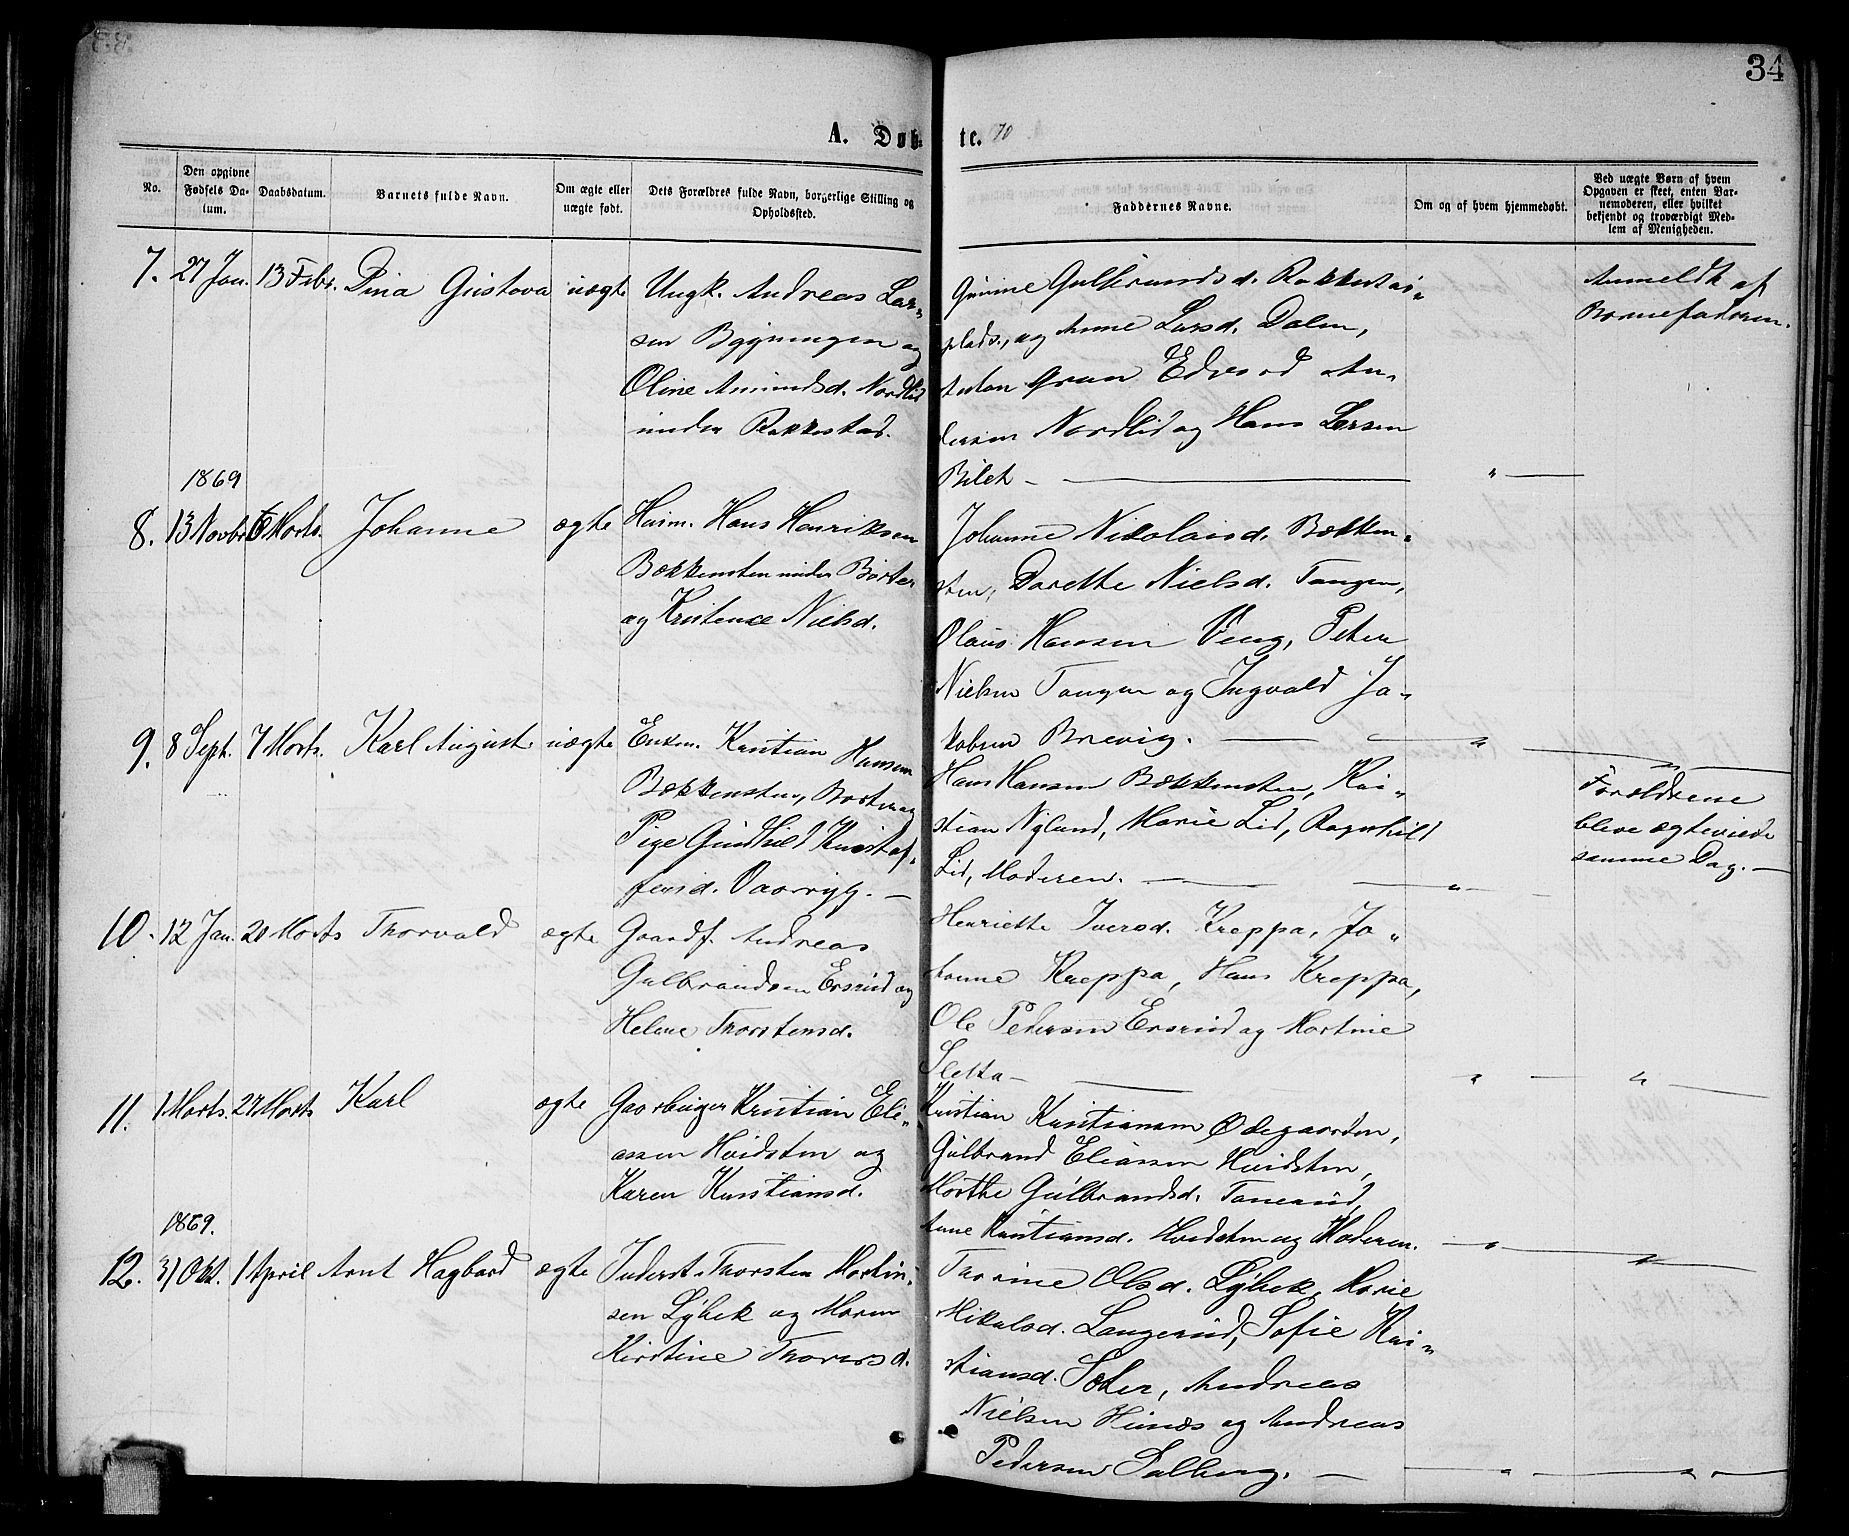 34
A. Døbte. 70
No.
Den opgivne Fødsels Datum.
Daabsdatum.
Barnets fulde Navn.
Om ægte eller uægte født.
Dets Forældres fulde Navn, borgerlige Stilling og Opholdssted.
Faddernes Navne.
Om og af hvem hjemmedøbt.
Ved uægte Børn af hvem Opgaven er skeet, enten Barnemoderen, eller hvilket bekjendt og troværdigt Medlem af Menigheden.
7. 27 Jan. 13 Febr. Dina Gustava uægte
Ungk. Andreas Lar„
sen Bygningen og
Oline Amundsd. Nordlid
under Rakkestad.
Gulbrandsd. Rakkestad„
plads., og Anne Larsd. Dalen,
Anton Gran Edvard An„
dersen Nordlid og Hans Larsen
Bilet — "
Anmeldt af
Barnefaderen.
1869
8. 13 Novbr. 6 Marts. Johanne ægte
Husm. Hans Henriksen
Bækkensten under Börter
og Kristence Nielsd.
Johanne Nikolaisd. Bækken„
sten, Dorette Nielsd. Tangen,
Olaus Hansen Veng, Peter
Nielsen Tangen og Ingvald Ja„
kobsen Brevig. — "
9. 8 Sept. 7 Marts. Karl August uægte
Enkm. Kristian Hansen
Bækkensten, Borter og
Pige Gunhild Kristof„
fersd. —
Hans Hansen Bækkensten, Kri„
stian Nyland, Marie Lid, Ragnhild
Lid, Moderen. — "
Forældrene
bleve ægteviede
samme Dag. —
10. 12 Jan. 20 Marts Thorvald ægte
Gaardf. Andreas
Gulbrandsen Ersrud og
Helene Thorstensd.
Henriette Iversd. Kreppa, Jo„
hanne Kreppa, Hans Kreppa,
Ole Pedersen Ersrud og Martine
Sletta — " — "
11. 1 Marts. 27 Marts Karl ægte
Gaardbruger Kristian Eli„
assen Hvidsten og
Karen Kristiansd.
Kristian Kristiansen Ødegaarden,
Gulbrand Eliassen Hvidsten,
Marthe Gulbrandsd. Tanerud,
Anne Kristiansd. Hvidsten og Moderen. "
1869.
12. 31 Okt. 1 April Arnt Hagbard ægte
Inderst Thorsten Martin„
sen Lÿbek og Maren
Kirstine Thorersd.
Thorine Olsd. Lÿbek, Marie
Mikalsd. Langerud, Sofie Kri„
stiansd. Sæter, Andreas
Nielsen Hunæs og Andreas
Pedersen Solberg. — "